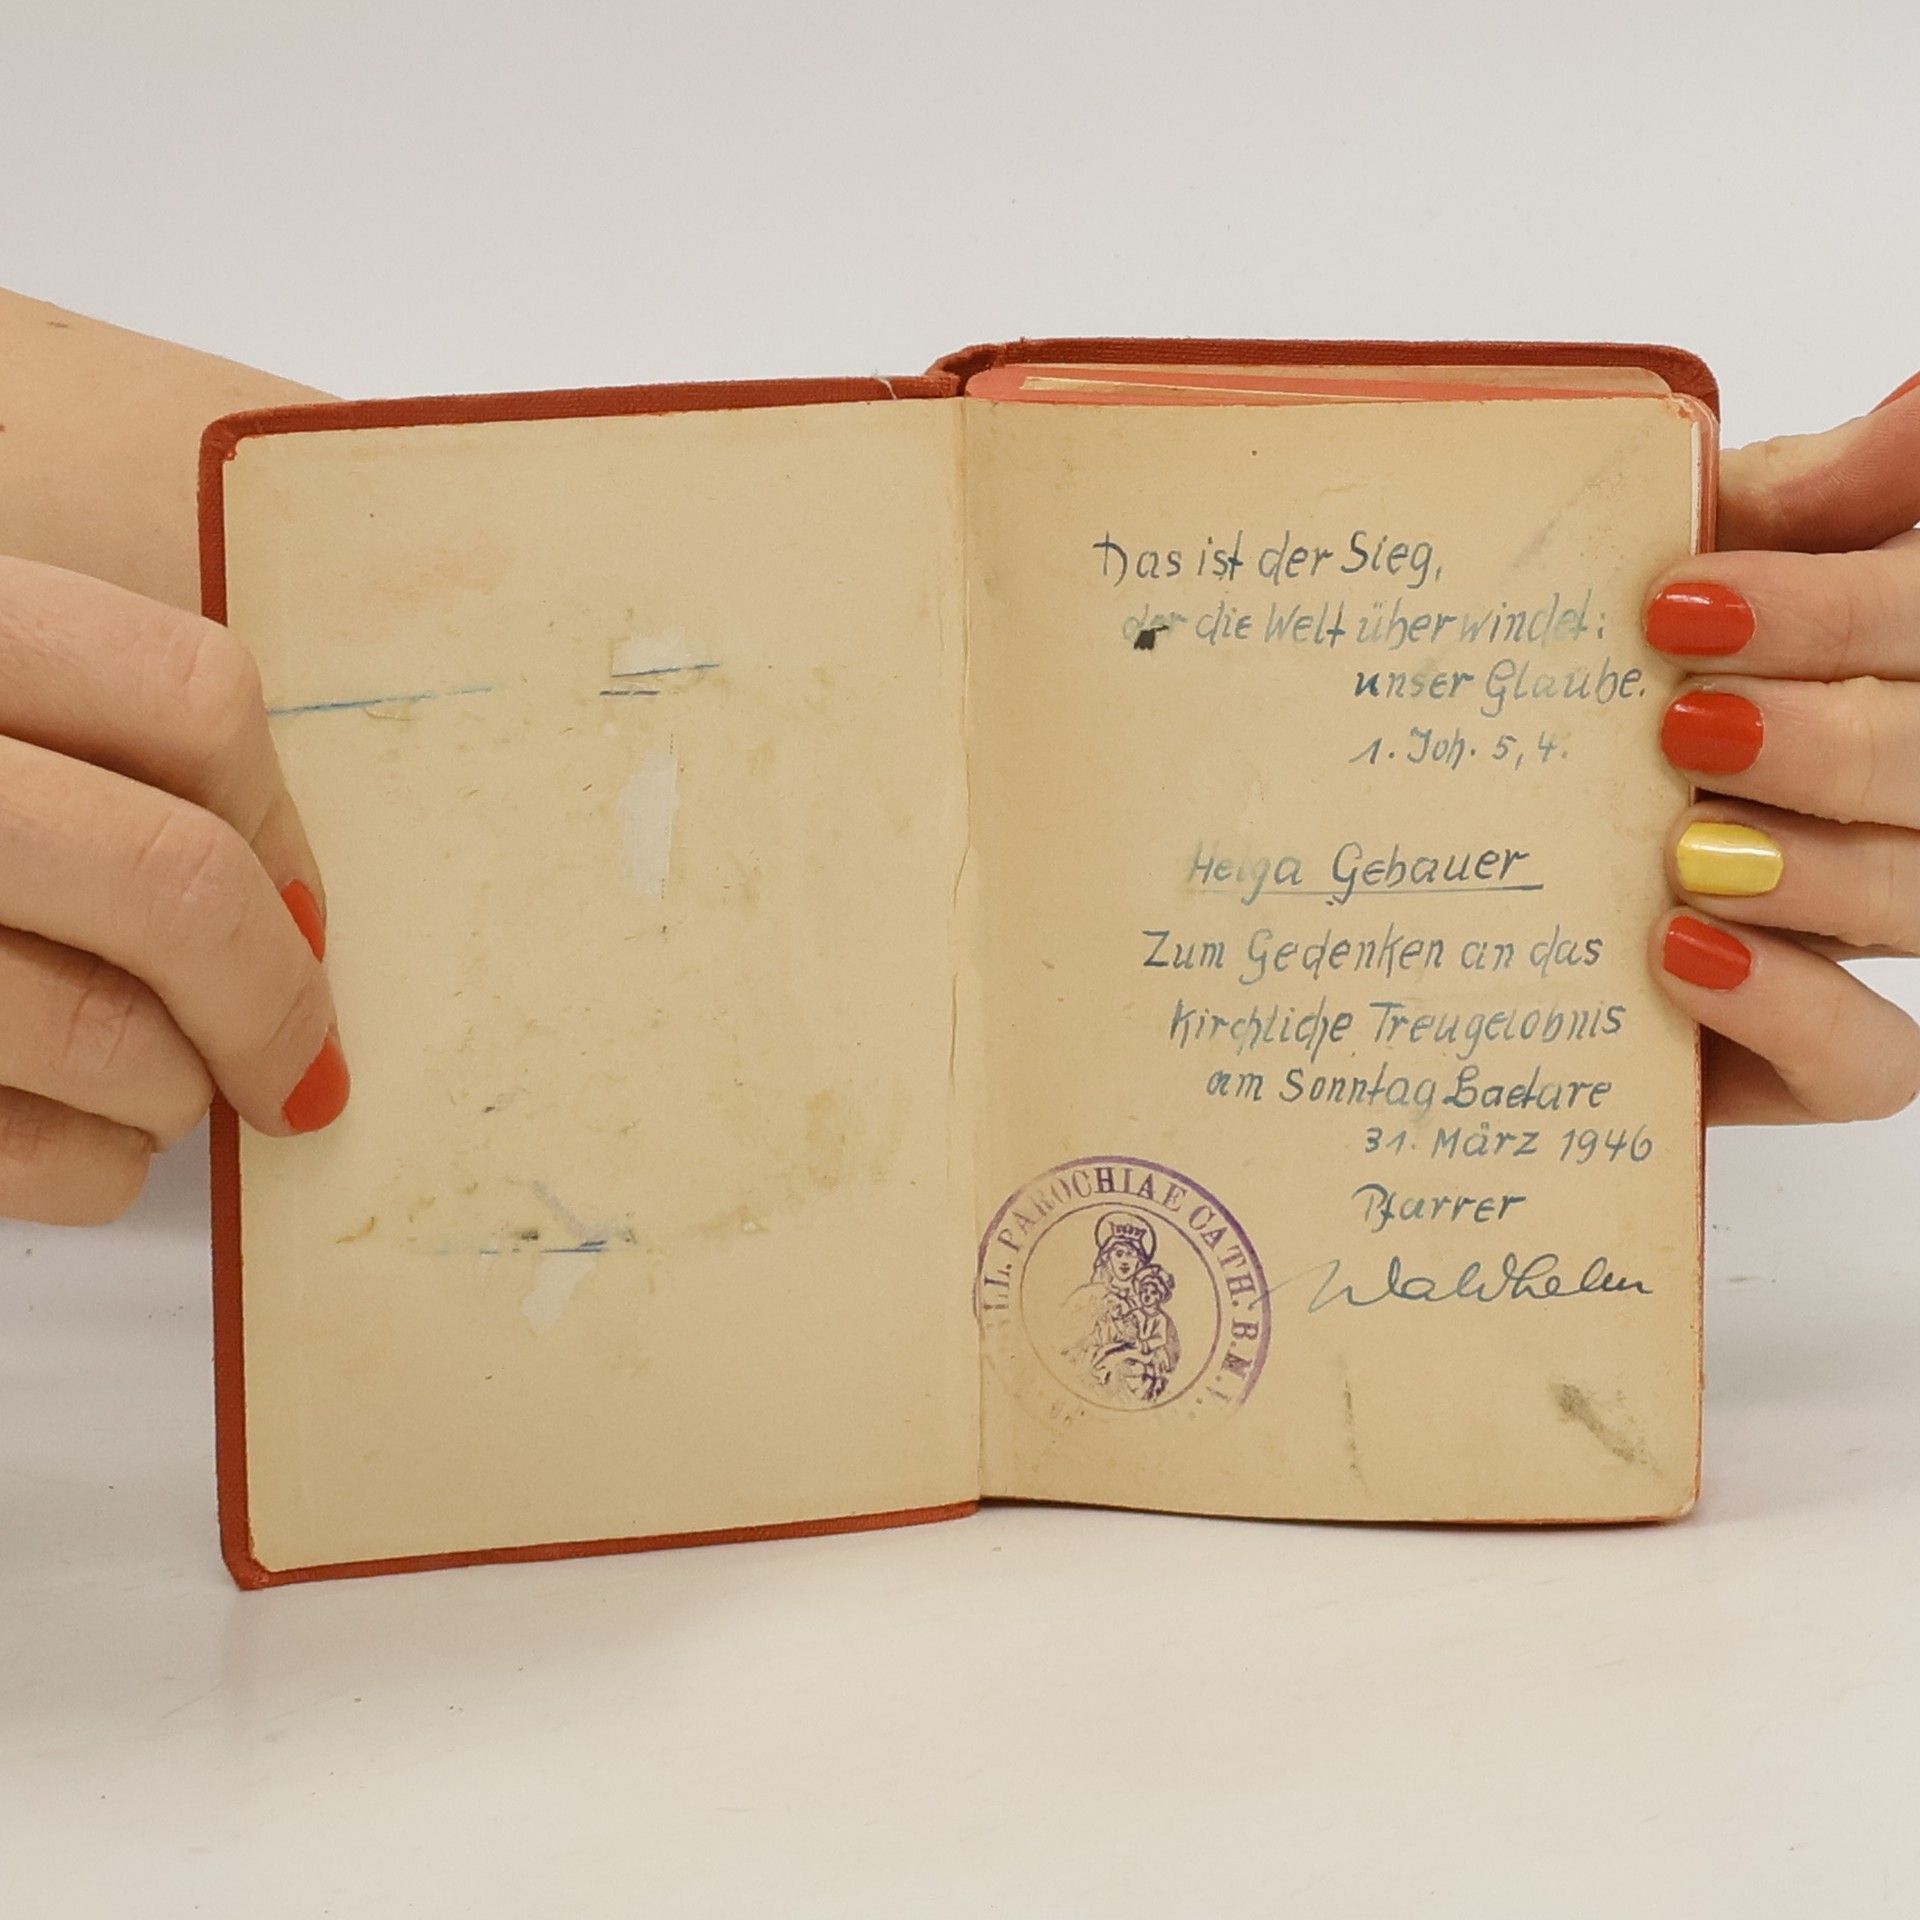 Das ist der Sieg,
der die Welt überwindet:
unser Glaube.
1. Joh. 5, 4.
Helga Gebauer
Zum Gedenken an das
kirchliche Treugelöbnis
am Sonntag Laetare
31. März 1946
Pfarrer
PAROCHIAE CATH. B.M.